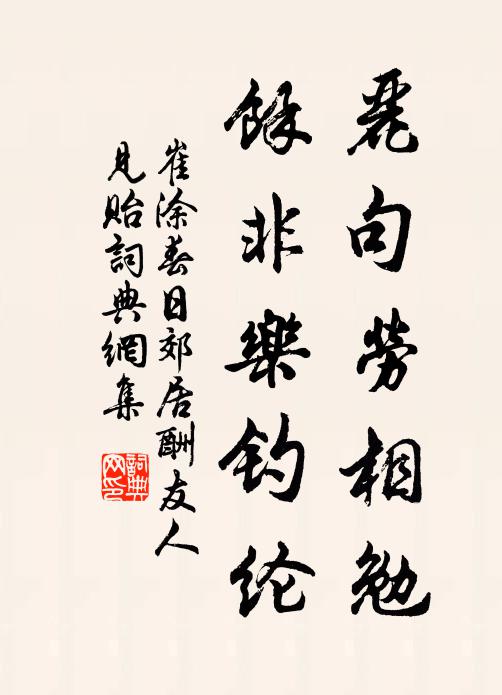 麗句勞相勉
餘非樂釣綸
崔涂春日郊居酬友人
見貽詞典網集
詞典網印